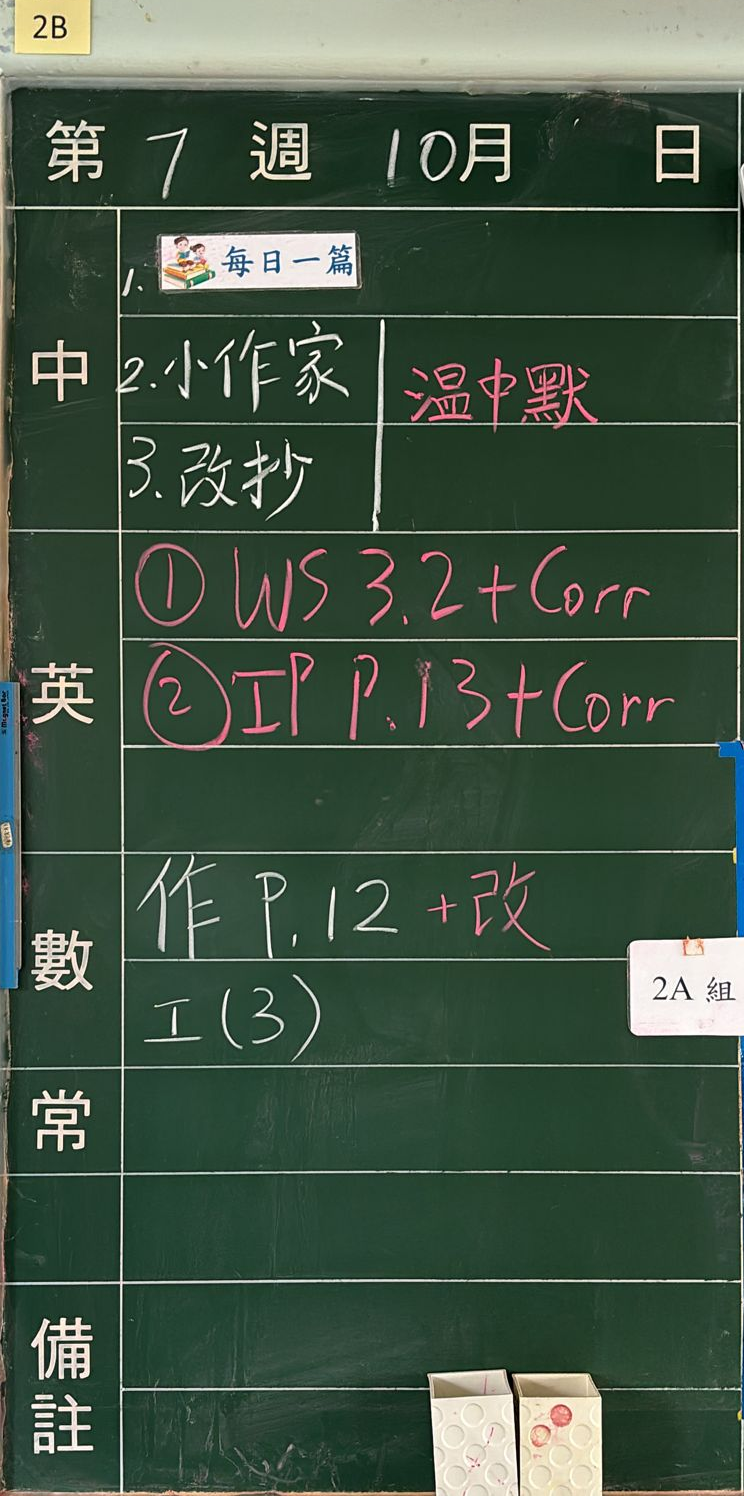 2B
第 7 週 10月 日
中
1. 每日一篇
2.小作家
3.改抄
温中默
英
① WS 3.2+Corr
② IP P.13+Corr
數
作 P.12 +改
工(3)
2A 組
常
備註